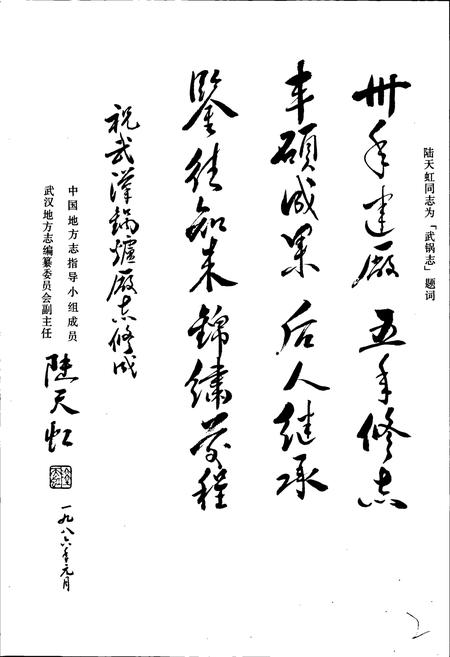 陆天虹同志为「武锅志」题词
卅年建厰 五年修志
丰硕成果 后人继承
鑒往知来 錦绣前程
祝武漢鍋爐厰志修成
中国地方志指导小组成员
武汉地方志编纂委员会副主任
陆天虹
一九八六年元月